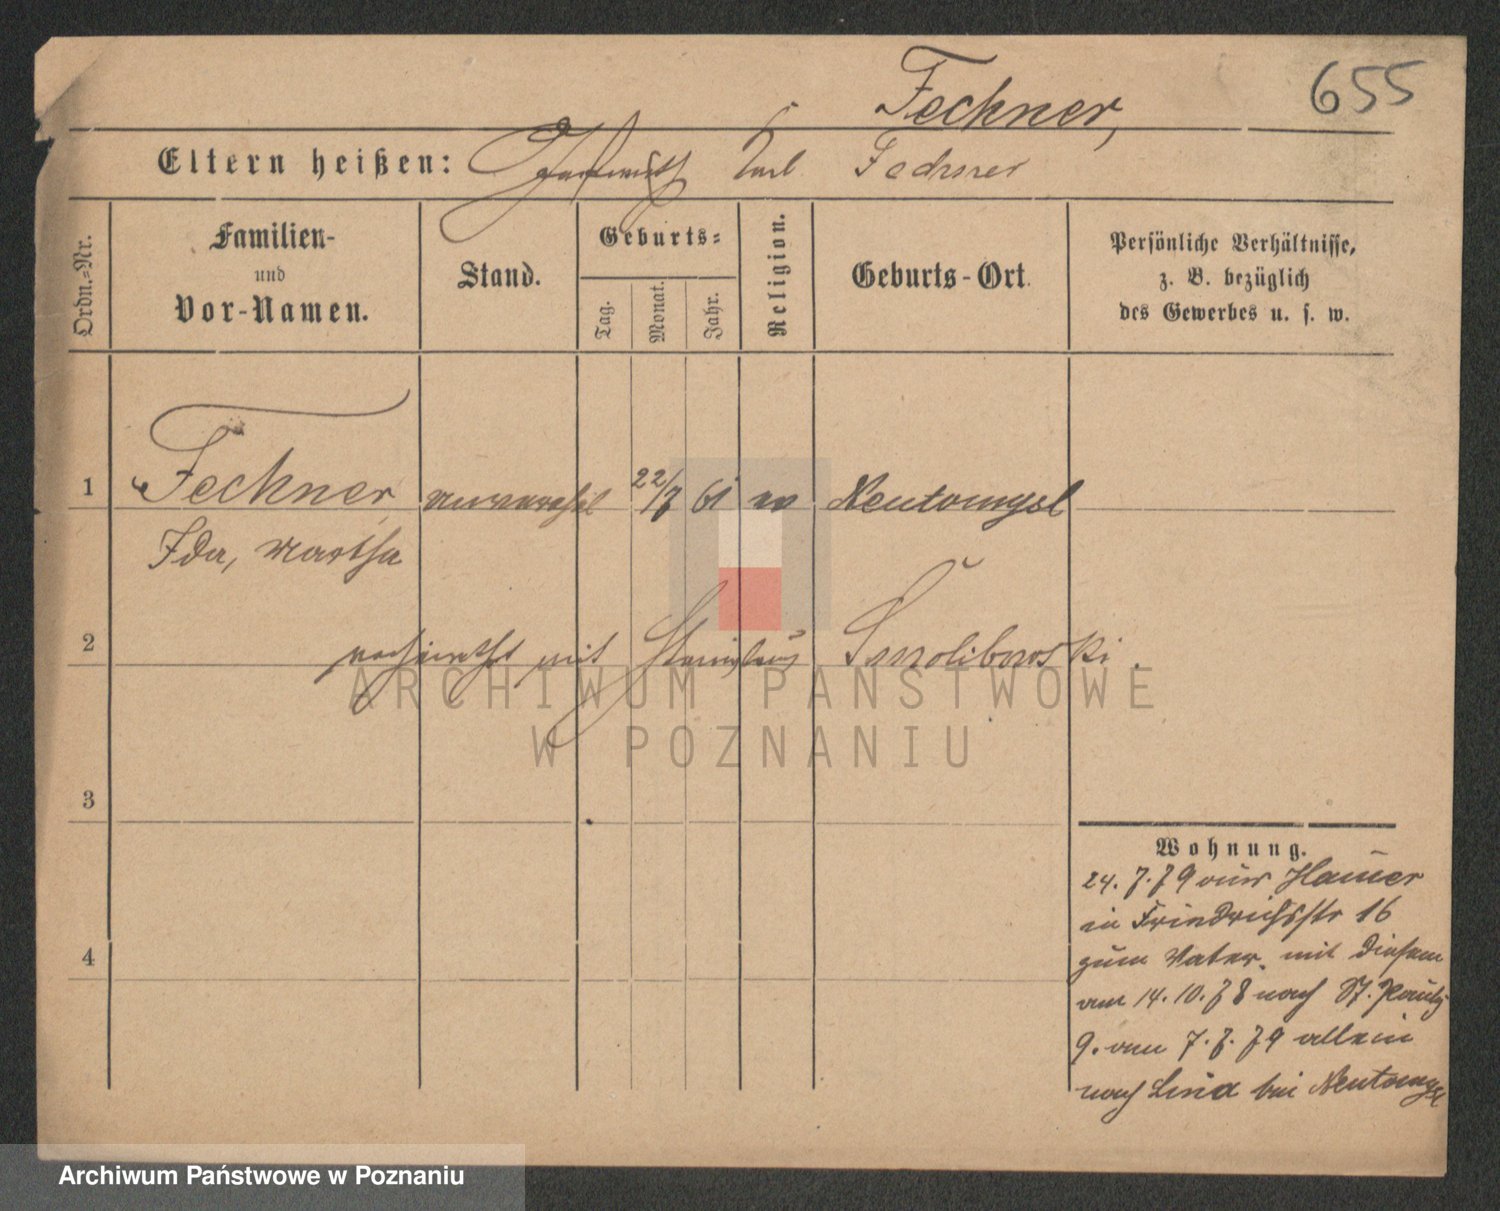 655
Fechner,
Eltern heißen: Karl Fechner
Ordn.-Nr.
Familien-
und
Vor-Namen.
Stand.
Geburts-
Tag.
Monat.
Jahr.
Religion.
Geburts-Ort.
Persönliche Verhältnisse,
z. B. bezüglich
des Gewerbes u. s. w.
1 Fechner, unverehel 22/7 61 ev Neutomysl
Ida, Martha
2 verheirathet mit Stanislaus Smolibowski.
3
4
Wohnung.
24. 7. 79 aus Hauer
in Friedrichsstr 16
zum Vater, mit diesem
am 14. 10. 78 nach St. Pauli
9. am 7. 7. 79 allein
nach Lind bei Neutomysl
ARCHIWUM PAŃSTWOWE
W POZNANIU
Archiwum Państwowe w Poznaniu